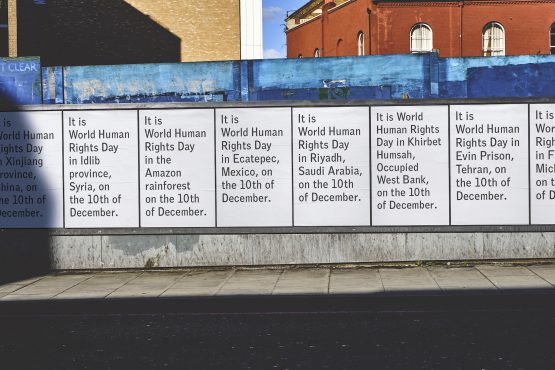 T CLEAR
It is
World Human
Rights Day
in Xinjiang
province,
China, on
the 10th of
December.
It is
World Human
Rights Day
in Idlib
province,
Syria, on
the 10th of
December.
It is
World Human
Rights Day
in the
Amazon
rainforest
on the 10th
of December.
It is
World Human
Rights Day
in Ecatepec,
Mexico, on
the 10th of
December.
It is
World Human
Rights Day
in Riyadh,
Saudi Arabia,
on the 10th
of December.
It is World
Human Rights
Day in Khirbet
Humsah,
Occupied
West Bank,
on the 10th
of December.
It is
World Human
Rights Day in
Evin Prison,
Tehran, on
the 10th of
December.
It is
Wor
Rig
in F
Mic
on t
of D